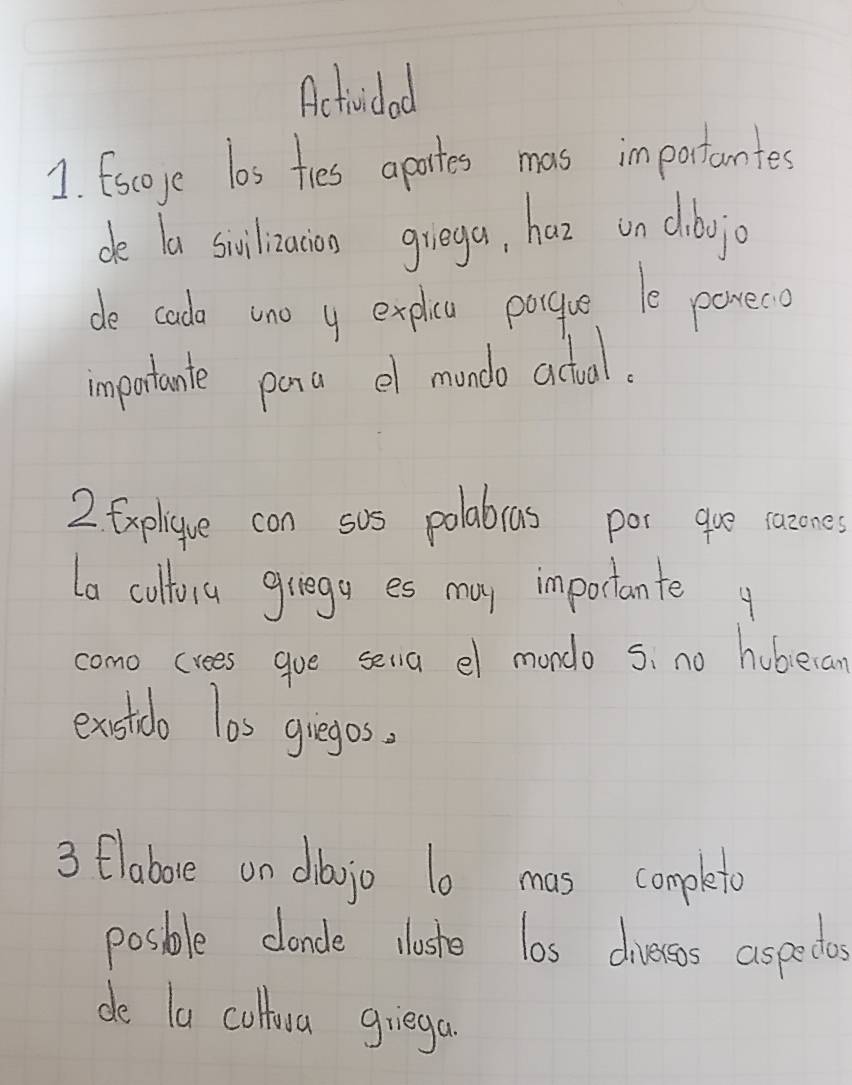 Actividad
1. Escoje los tres aportes mas importantes
de la sivilizacion griega, haz un dibujo
de cada uno y explica porque le parecio
importante para el mundo actual.
2. Explique con sus palabras por que razones
La cultura griega es muy importante y
como crees que seria el mundo si no hubieran
existido los griegos.
3 Elabore un dibujo lo mas completo
posible donde ilustre los diversos aspectos
de la cultura griega.